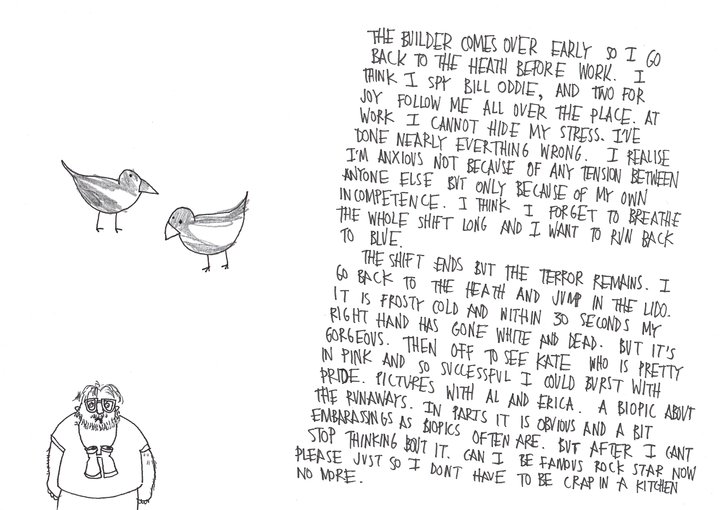 THE BUILDER COMES OVER EARLY SO I GO
BACK TO THE HEATH BEFORE WORK. I
THINK I SPY BILL ODDIE, AND TWO FOR
JOY FOLLOW ME ALL OVER THE PLACE. AT
WORK I CANNOT HIDE MY STRESS. I'VE
DONE NEARLY EVERTHING WRONG. I REALISE
I'M ANXIOUS NOT BECAUSE OF ANY TENSION BETWEEN
ANYONE ELSE BUT ONLY BECAUSE OF MY OWN
INCOMPETENCE. I THINK I FORGET TO BREATHE
THE WHOLE SHIFT LONG AND I WANT TO RUN BACK
TO BLUE.
THE SHIFT ENDS BUT THE TERROR REMAINS. I
GO BACK TO THE HEATH AND JUMP IN THE LIDO.
IT IS FROSTY COLD AND WITHIN 30 SECONDS MY
RIGHT HAND HAS GONE WHITE AND DEAD. BUT IT'S
GORGEOUS. THEN OFF TO SEE KATE WHO IS PRETTY
IN PINK AND SO SUCCESSFUL I COULD BURST WITH
PRIDE. PICTURES WITH AL AND ERICA. A BIOPIC ABOUT
THE RUNAWAYS. IN PARTS IT IS OBVIOUS AND A BIT
EMBARASSINGS AS BIOPICS OFTEN ARE. BUT AFTER I CANT
STOP THINKING BOUT IT. CAN I BE FAMOUS ROCK STAR NOW
PLEASE JUST SO I DONT HAVE TO BE CRAP IN A KITCHEN
NO MORE.